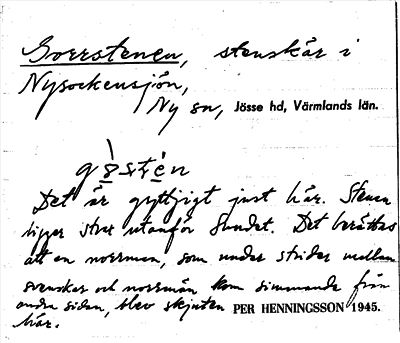 Gorrstenen, stenskär i
Nysockensjön,
Ny sn, Jösse hd, Värmlands län.
Det är gryttjigt just här. Stenen
ligger strax utanför Sundet. Det berättas
att en norrman, som under strider mellan
svenskar och norrmän kom simmande från
andra sidan, blev skjuten PER HENNINGSSON 1945.
här.